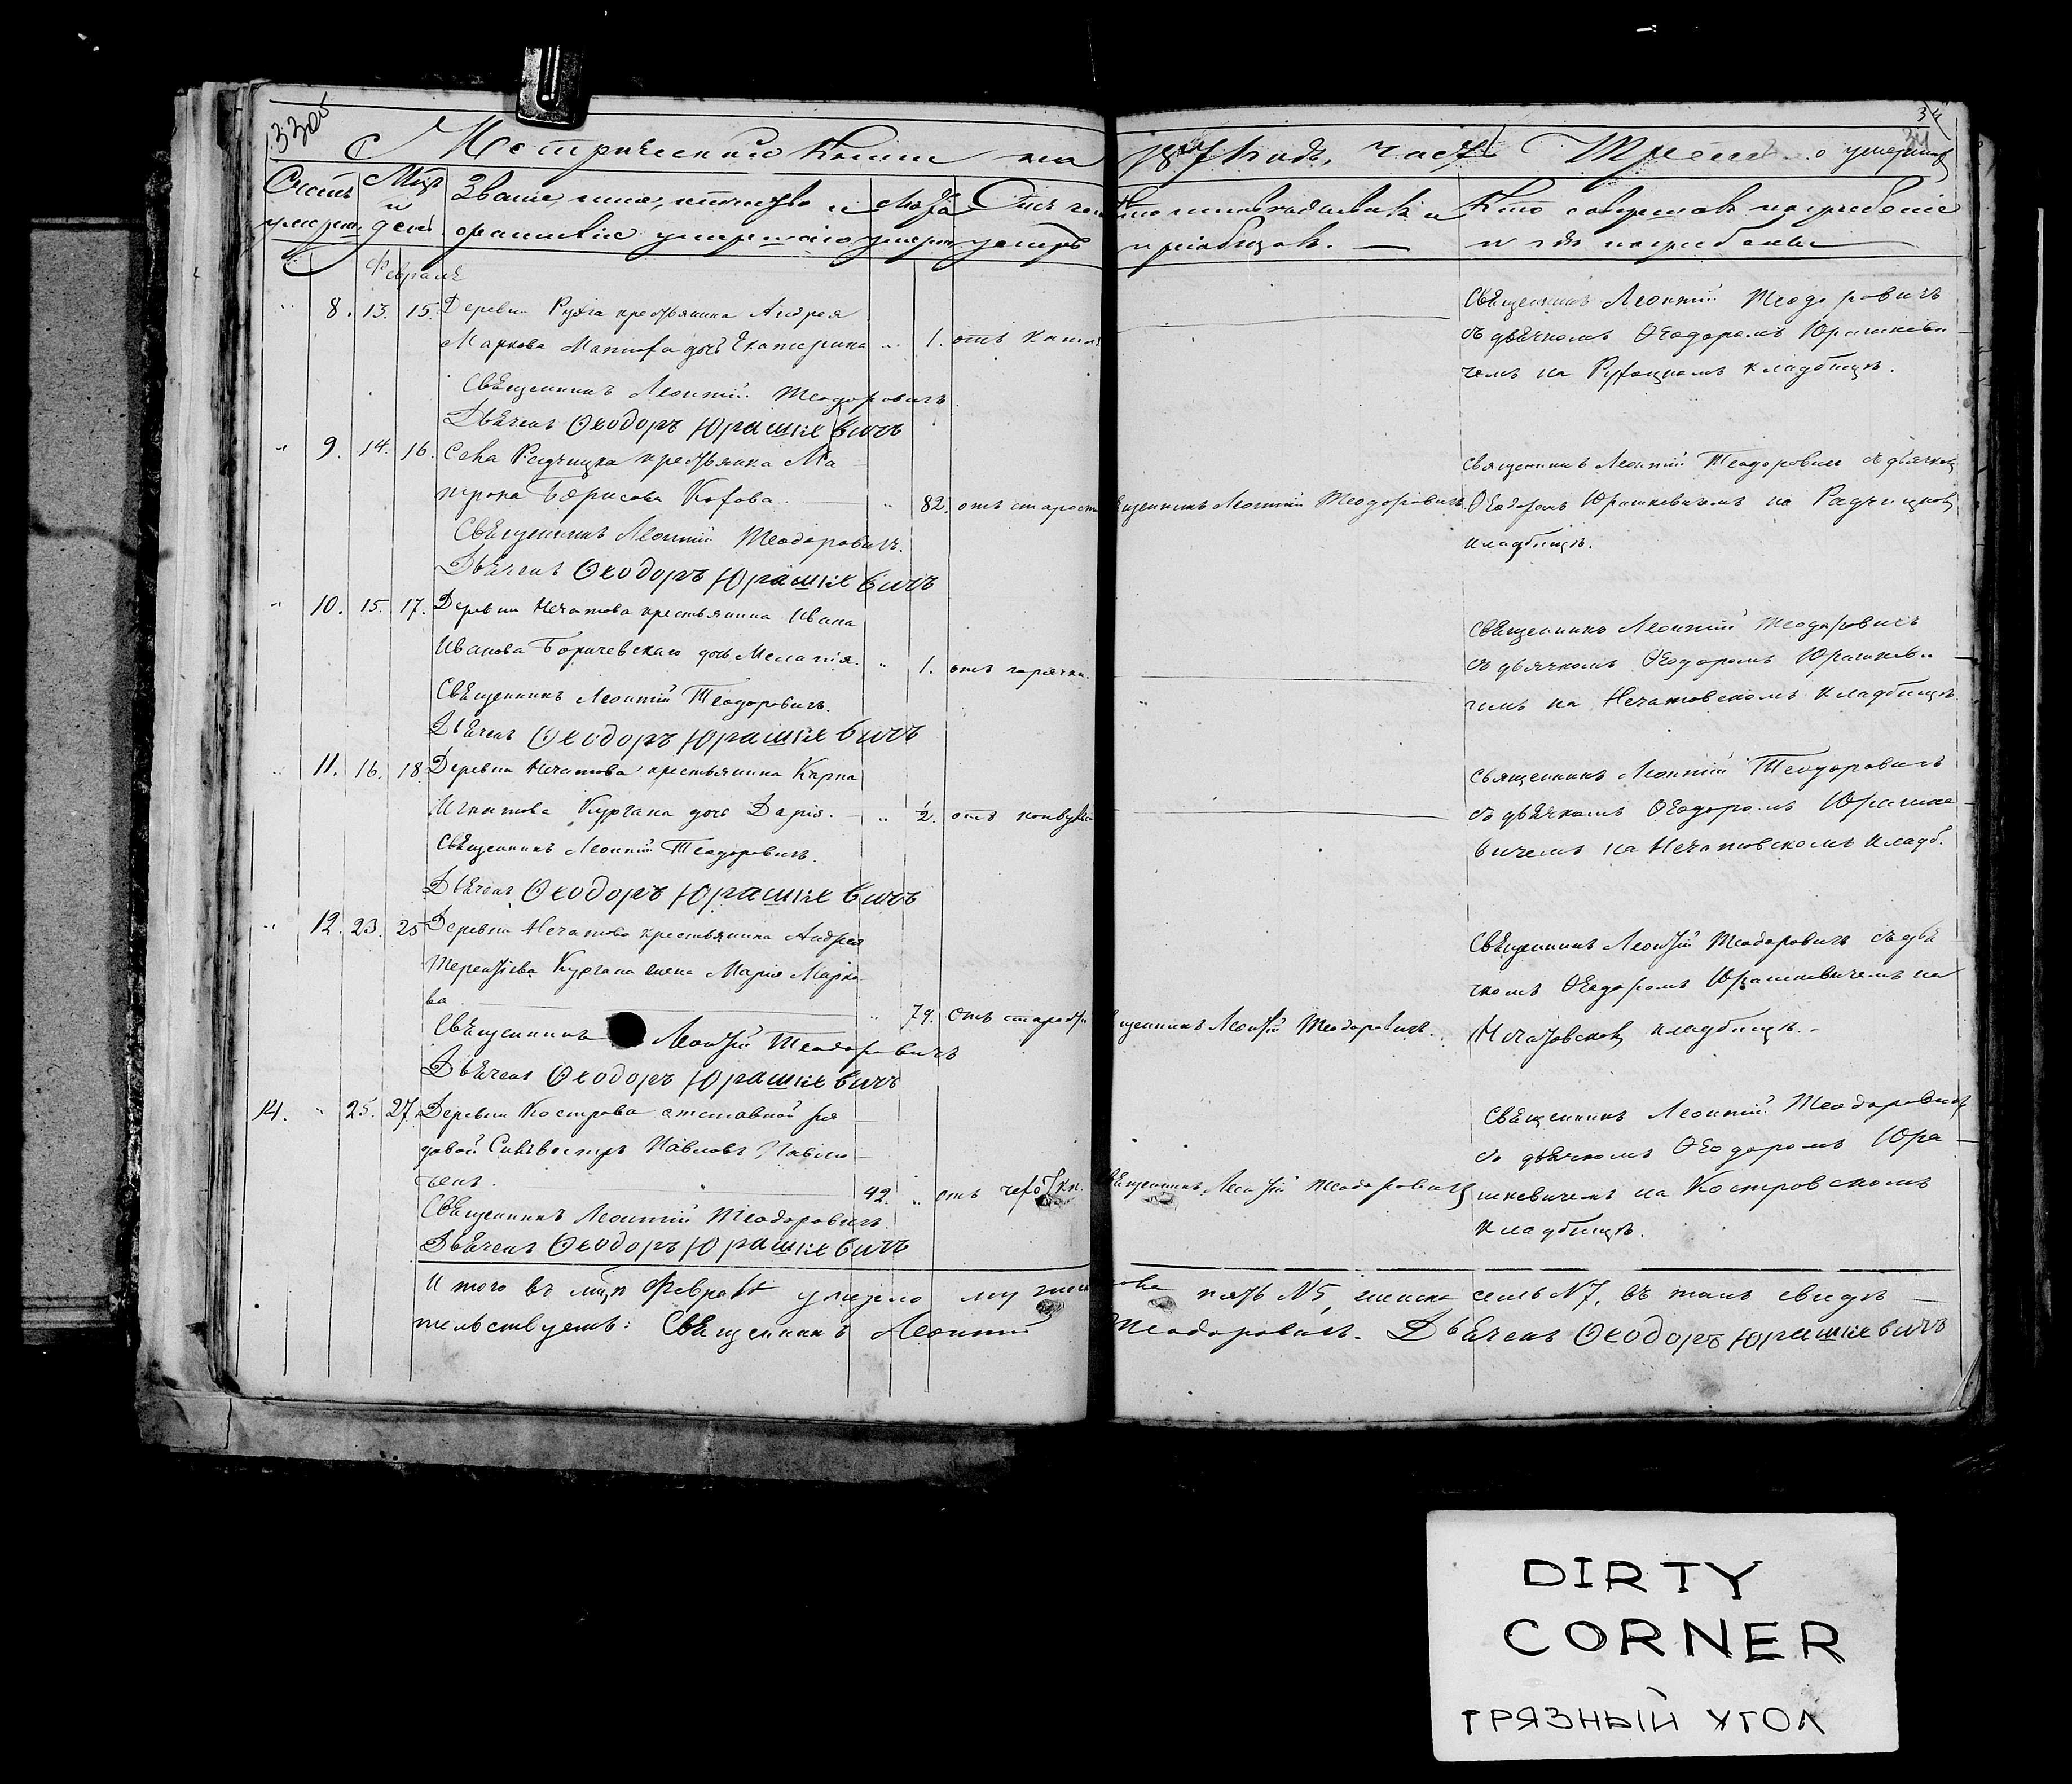 33об
34
Метрической Книги на 18 7 Годъ, часть Третья о умершихъ
Счетъ умерш.
Мцъ и день
Званіе, имя, отчество и фамилія умершаго
Лѣта умерш
Отъ чего умеръ
Кто исповѣдывалъ и пріобщалъ.
Кто совершалъ погребеніе и гдѣ погребены
Февраль
8. 13. 15. Деревни крестьянина Андрея
Маркова дочь Екатерина 1. отъ
Священникъ Леонтій Теодоровичъ
Дьячекъ Ѳеодоръ Юрашкевичъ
Священникъ Леонтій Теодоровичъ
съ дьячкомъ Ѳеодоромъ Юрашкеви
чемъ на кладбищѣ.
9. 14. 16. Села Радчицка крестьянка Ма
трона Борисова 82. отъ старости
Священникъ Леонтій Теодоровичъ.
Дьячекъ Ѳеодоръ Юрашкевичъ
щенникъ Леонтій Теодоровичъ.
Священникъ Леонтій Теодоровичъ съ дьячкомъ
Ѳеодоромъ Юрашкевичемъ на Радчицком
кладбищѣ.
10. 15. 17. Деревни Нечатова крестьянина Ивана
Иванова Боричевскаго дочь Меланія. 1. отъ горячки.
Священникъ Леонтій Теодоровичъ.
Дьячекъ Ѳеодоръ Юрашкевичъ
Священникъ Леонтій Теодоровичъ
съ дьячкомъ Ѳеодоромъ Юрашкеви
чемъ на Нечатовскомъ кладбищѣ.
11. 16. 18. Деревни Нечатова крестьянина
Игнатова Кургана дочь Дарія. 1/2. отъ
Священникъ Леонтій Теодоровичъ.
Дьячекъ Ѳеодоръ Юрашкевичъ
Священникъ Леонтій Теодоровичъ
съ дьячкомъ Ѳеодоромъ Юрашке
вичемъ на Нечатовскомъ кладб.
12. 23. 25 Деревни Нечатова крестьянина Андрея
Терентіева Кургана жена Марія Марко
ва 79. Отъ старости
Священникъ Леонтій Теодоровичъ
Дьячекъ Ѳеодоръ Юрашкевичъ
щенникъ Леонтій Теодоровичъ.
Священникъ Леонтій Теодоровичъ съ дья
чкомъ Ѳеодоромъ Юрашкевичемъ на
Нечатовском кладбищѣ.
14. 25. 27. Деревни Кострова отставной ря
довой Сильвестръ Павловъ
42. отъ
Священникъ Леонтій Теодоровичъ.
Дьячекъ Ѳеодоръ Юрашкевичъ
Священникъ Леонтій Теодоровичъ
Священникъ Леонтій Теодоровичъ
съ дьячкомъ Ѳеодоромъ Юра
шкевичемъ на Костровскомъ
кладбищѣ.
И того въ мцѣ Февралѣ умерло муж пять №5, женска семь №7, въ томъ свидѣ
тельствуетъ: Священникъ Леонтій Теодоровичъ. Дьячекъ Ѳеодоръ Юрашкевичъ
DIRTY
CORNER
ГРЯЗНЫЙ УГОЛ